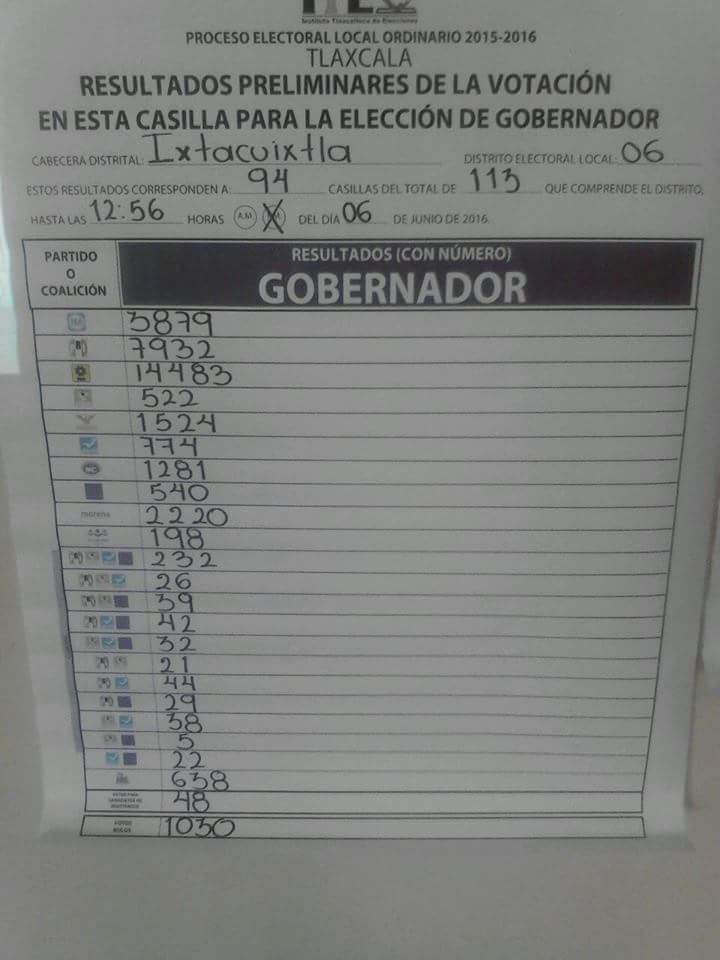 Instituto Tlaxcalteca de Elecciones
PROCESO ELECTORAL LOCAL ORDINARIO 2015-2016
TLAXCALA
RESULTADOS PRELIMINARES DE LA VOTACIÓN
EN ESTA CASILLA PARA LA ELECCIÓN DE GOBERNADOR
CABECERA DISTRITAL: Ixtacuixtla DISTRITO ELECTORAL LOCAL: 06
ESTOS RESULTADOS CORRESPONDEN A: 94 CASILLAS DEL TOTAL DE 113 QUE COMPRENDE EL DISTRITO,
HASTA LAS 12:56 HORAS A.M DEL DÍA 06 DE JUNIO DE 2016.
PARTIDO O COALICIÓN
RESULTADOS (CON NÚMERO)
GOBERNADOR
3879
7932
14483
522
1524
774
1281
540
morena 2220
198
232
26
39
42
32
21
44
29
38
5
22
638
48
VOTOS NULOS 1030